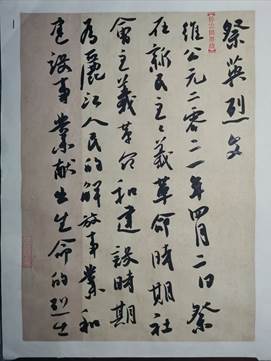 祭英烈文
維公元二零二一年四月二日祭
在新民主主義革命時期社
會主義革命和建設時期
為麗江人民的解放事業和
建設事業献出生命的烈士